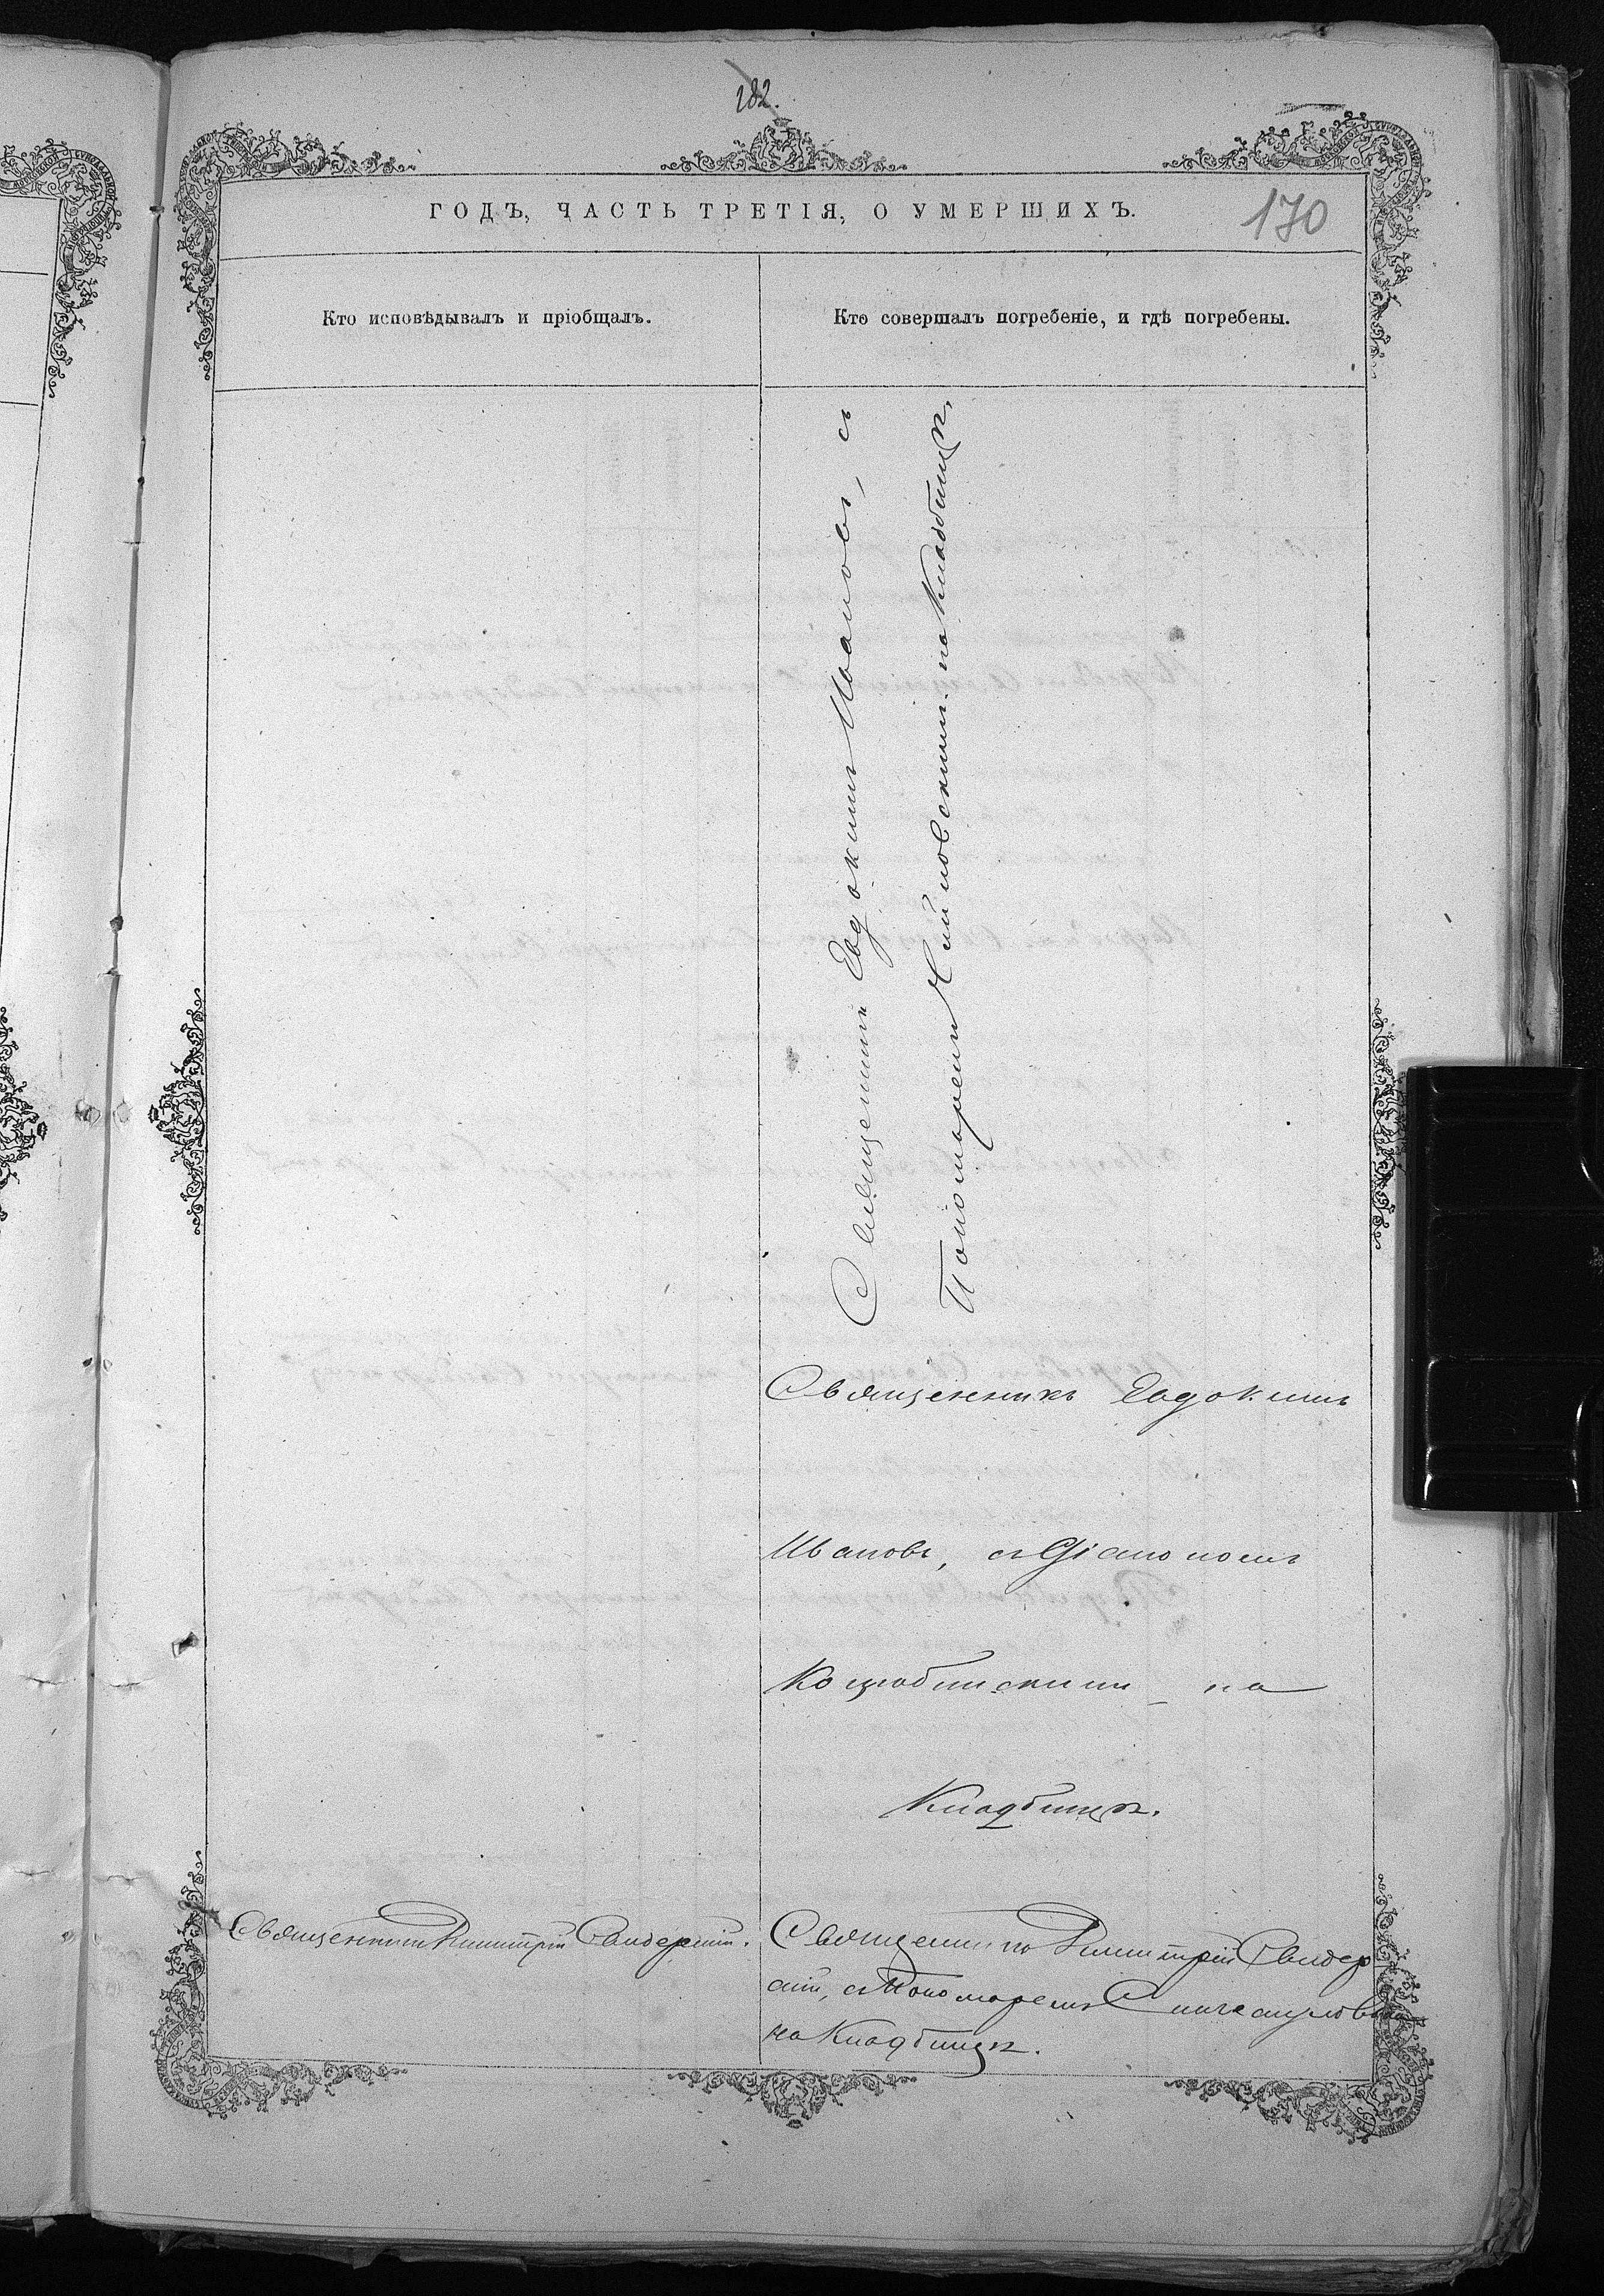 182.
ГОДЪ, ЧАСТЬ ТРЕТІЯ, О УМЕРШИХЪ.
170
Кто исповѣдывалъ и пріобщалъ.
Кто совершалъ погребеніе, и гдѣ погребены.
Священникъ Евдокимъ Ивановъ, съ
Пономаремъ на Кладбищѣ,
Священникъ Евдокимъ
Ивановъ, съ Діакономъ
Коцюбинскимъ на
Кладбищѣ.
Священникъ Димитрій Свидерскій.
Священникъ Димитрій Свидер
скій, съ Пономаремъ
на Кладбищѣ.